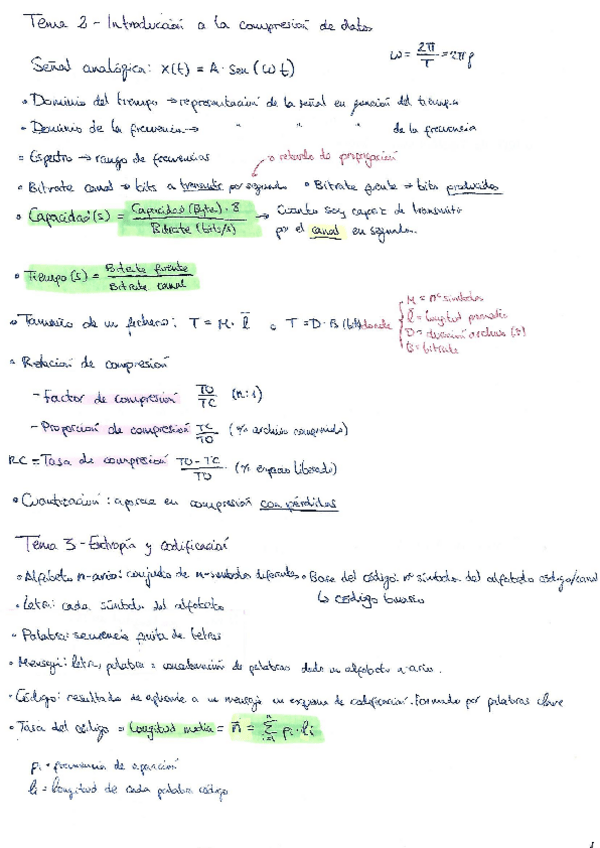 Tema 2 - Introducción a la compresión de datos
Señal analógica: x(t) = A · Sen (ωt)
ω = 2π/T = 2πf
• Dominio del tiempo → representación de la señal en función del tiempo
• Dominio de la frecuencia → " " " de la frecuencia
• Espectro → rango de frecuencias
o retardo de propagación
• Bitrate canal → bits a transmitir por segundo • Bitrate fuente → bits producidos
• Capacidad (s) = Capacidad (Bytes) · 8 / Bitrate (bits/s) → Cuanto soy capaz de transmitir
por el canal en segundos.
• Tiempo (s) = Bitrate fuente / Bitrate canal
• Tamaño de un fichero: T = M · l̄ o T = D · B (bits) donde
M = nº símbolos
l̄ = longitud promedio
D = duración archivo (s)
B = bitrate
• Relación de compresión
- Factor de compresión TO/TC (n:1)
- Proporción de compresión TC/TO (% archivo comprimido)
RC = Tasa de compresión TO - TC / TO (% espacio liberado)
• Cuantización: aparece en compresión con pérdidas
Tema 3 - Entropía y codificación
• Alfabeto n-ario: conjunto de n-símbolos diferentes • Base del código: nº símbolos del alfabeto código/canal
↳ código binario
• Letra: cada símbolo del alfabeto
• Palabra: secuencia finita de letras
• Mensaje: letra, palabra o concatenación de palabras dado un alfabeto n-ario.
• Código: resultado de aplicarle a un mensaje un esquema de codificación. Formado por palabras clave
• Tasa del código = Longitud media = n̄ = Σ pi · li
pi = frecuencia de aparición
li = longitud de cada palabra código
1